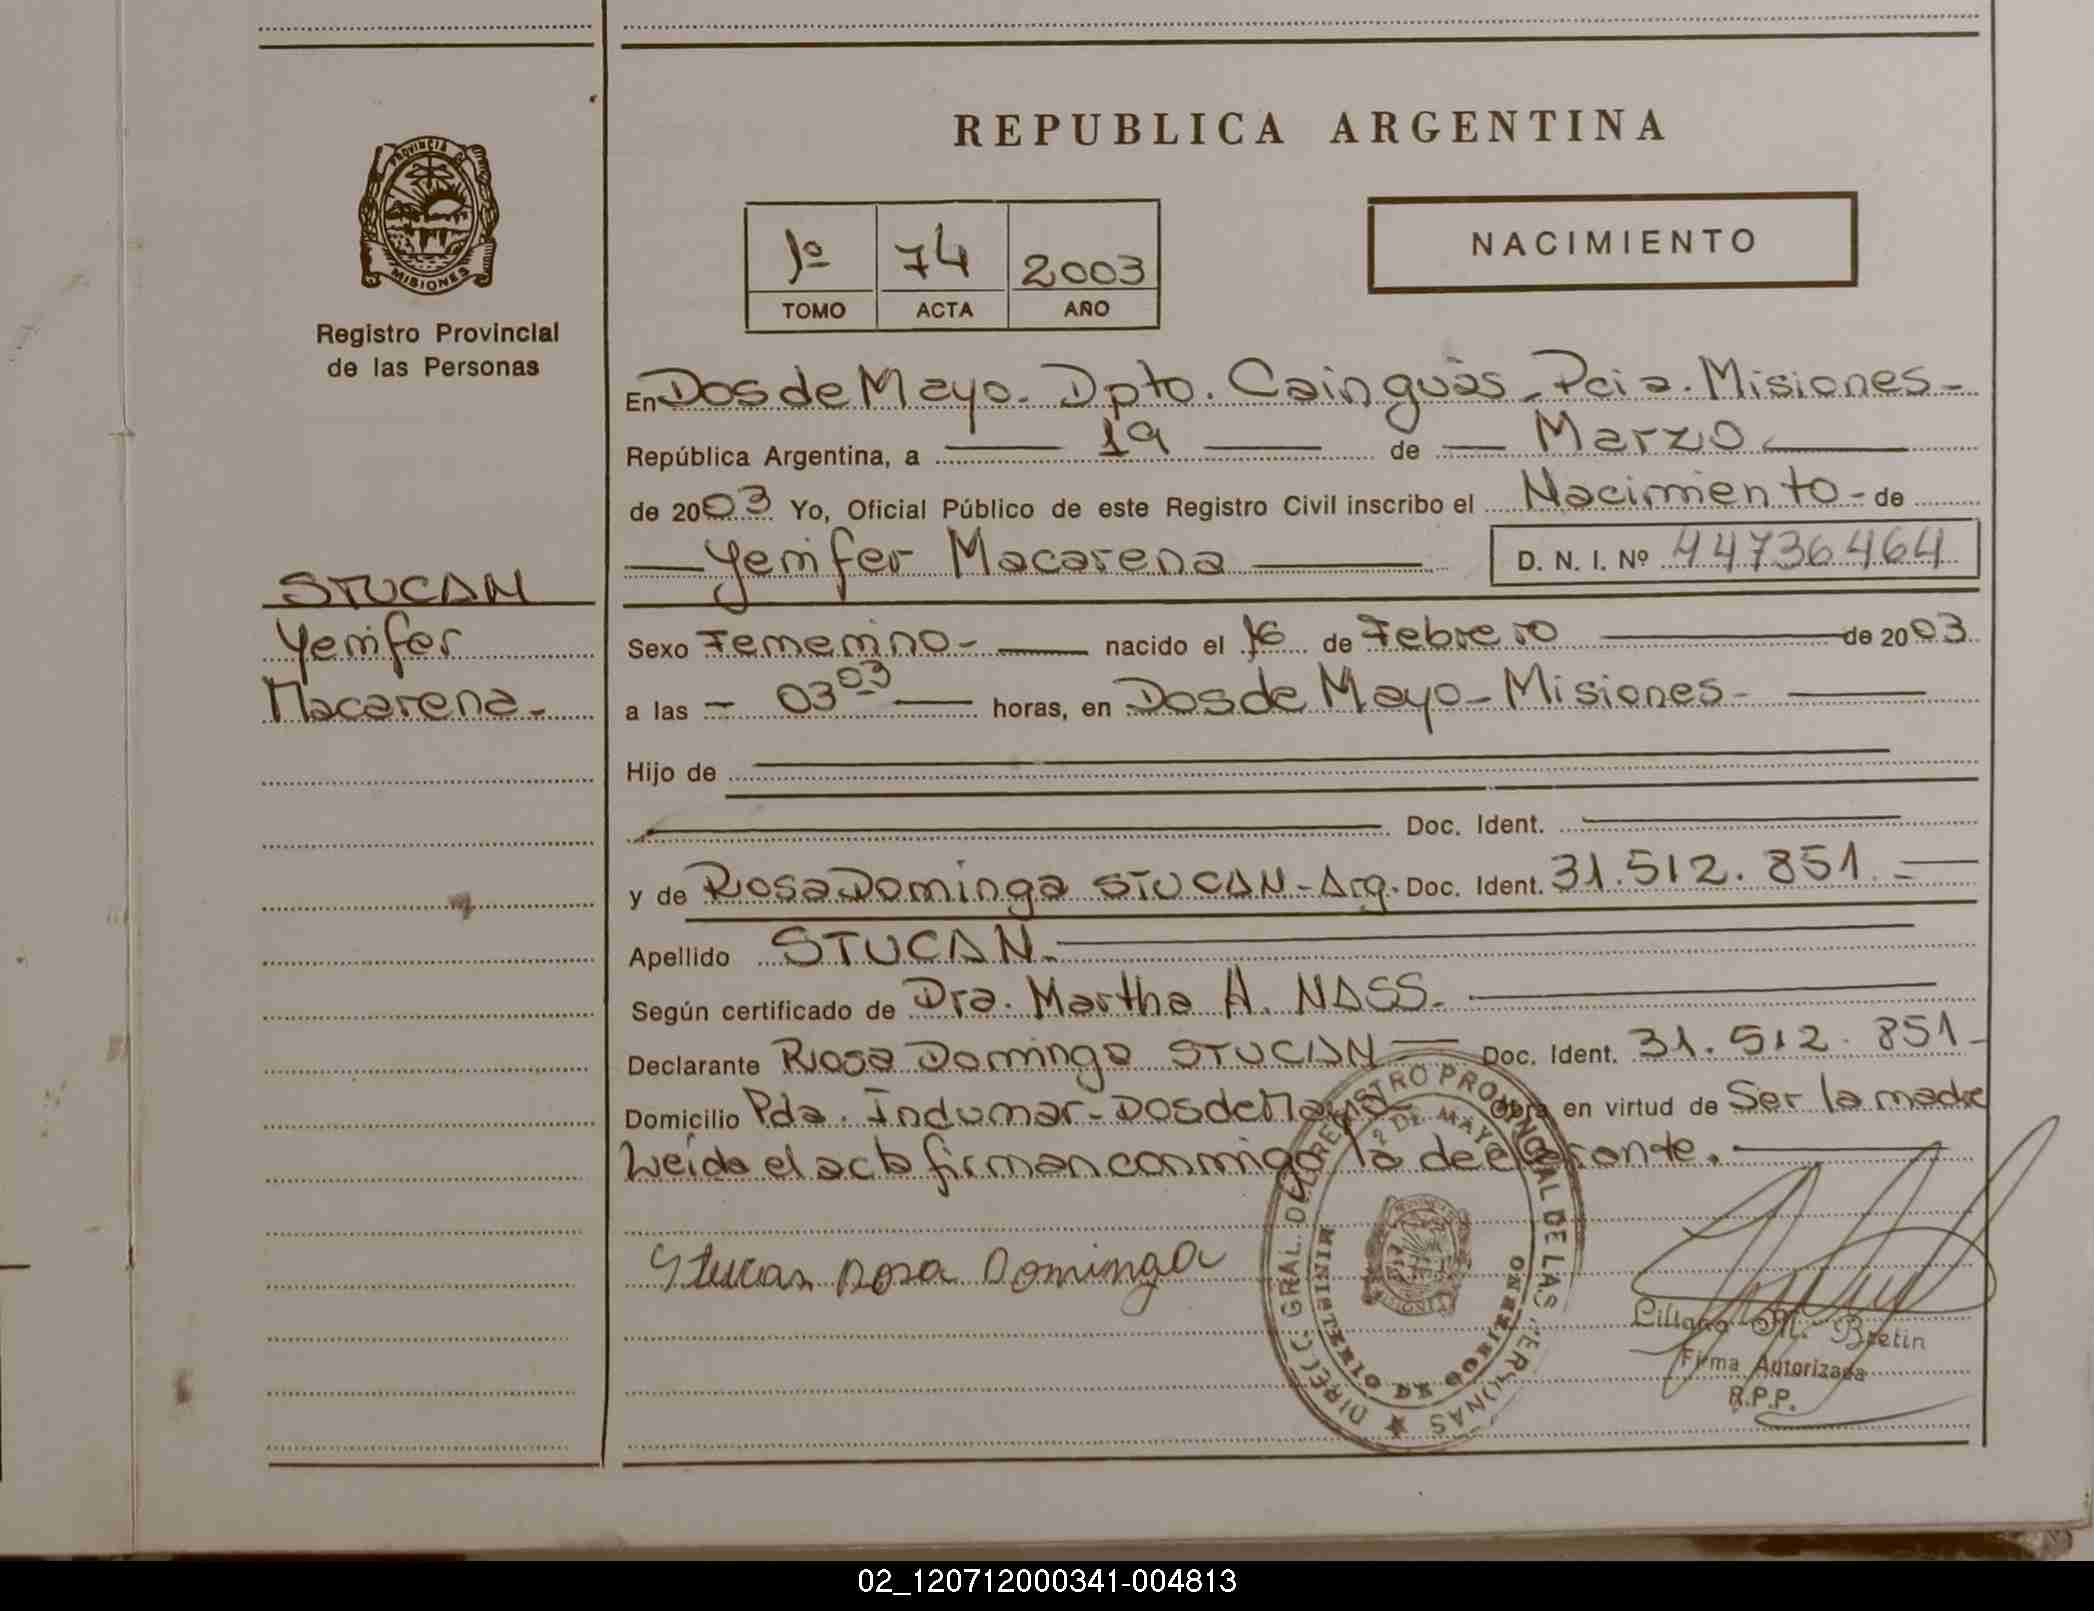 REPUBLICA ARGENTINA
PROVINCIA DE
MISIONES
Registro Provincial
de las Personas
1º 74 2003
TOMO ACTA AÑO
NACIMIENTO
En Dos de Mayo. Dpto. Cainguàs. Pcia. Misiones-
República Argentina, a 19 de Marzo
de 2003 Yo, Oficial Público de este Registro Civil inscribo el Nacimiento- de
Yenifer Macarena D. N. I. Nº 44736464
STUCAN
Yenifer
Macarena-
Sexo Femenino- nacido el 16 de Febrero de 2003
a las - 03 03 horas, en Dos de Mayo-Misiones-
Hijo de
Doc. Ident.
y de Rosa Dominga STUCAN-Arg. Doc. Ident. 31.512.851.=
Apellido STUCAN.-
Según certificado de Dra. Martha A. NASS-
Declarante Rosa Dominga STUCAN- Doc. Ident. 31.512.851-
Domicilio Pda. Indumar-Dos de Mayo- Obra en virtud de Ser la madre
Leída el acta firman conmigo la declarante.
Stucan Rosa Dominga
DIRECC. GRAL. DEL REGISTRO PROVINCIAL DE LAS PERSONAS
2 DE MAYO
MINISTERIO DE GOBIERNO
MISIONES
Liliana M. Bretin
Firma Autorizada
R.P.P.
02_120712000341-004813